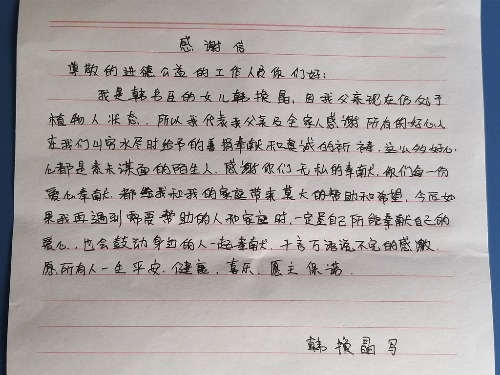 感谢信
尊敬的进德公益的工作人员你们好:
我是韩书臣的女儿韩换晶,因我父亲现在仍处于
植物人状态,所以我代表我父亲及全家人感谢所有的好心人
在我们叫穷水尽时给予的善捐奉献和真诚的祈祷,这么的好心
人都是素未谋面的陌生人,感谢你们无私的奉献,你们每一份
爱心奉献,都给我和我的家庭带来莫大的帮助和希望,今后如
果我再遇到需要帮助的人和家庭时,一定尽自己所能奉献自己的
爱心,也会鼓动身边的人一起奉献,千言万语说不完的感激,
愿所有人一生平安,健康,喜乐,愿主保满.
韩换晶写